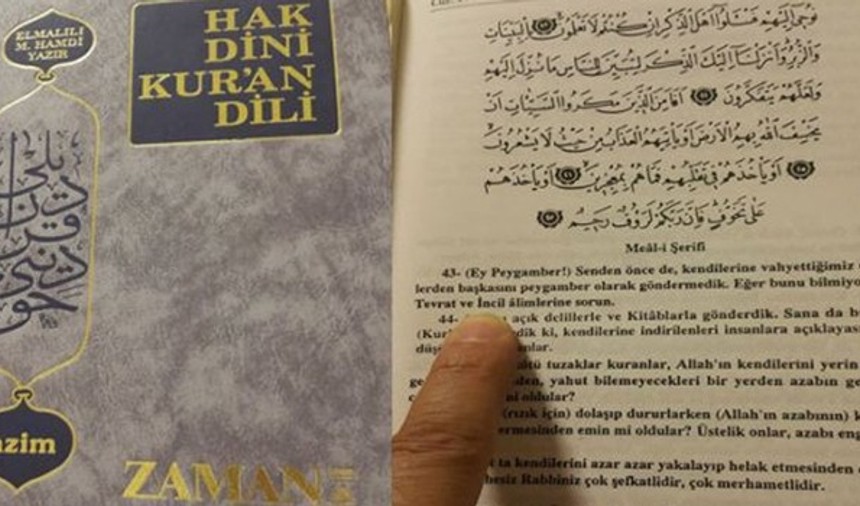 ELMALILI
M. HAMDİ
YAZIR
HAK
DİNİ
KUR'AN
DİLİ
azim
ZAMAN
نُوحٓى اِلَيْهِمْ فَسْـَٔلُٓوا اَهْلَ الذِّكْرِ اِنْ كُنْتُمْ لَا تَعْلَمُونَ ﴿٤٣﴾ بِالْبَيِّنَاتِ
وَالزُّبُرِ وَاَنْزَلْنَٓا اِلَيْكَ الذِّكْرَ لِتُبَيِّنَ لِلنَّاسِ مَا نُزِّلَ اِلَيْهِمْ
وَلَعَلَّهُمْ يَتَفَكَّرُونَ ﴿٤٤﴾ اَفَاَمِنَ الَّذ۪ينَ مَكَرُوا السَّيِّـَٔاتِ اَنْ
يَخْسِفَ اللّٰهُ بِهِمُ الْاَرْضَ اَوْ يَأْتِيَهُمُ الْعَذَابُ مِنْ حَيْثُ لَا يَشْعُرُونَ
﴿٤٥﴾ اَوْ يَأْخُذَهُمْ ف۪ي تَقَلُّبِهِمْ فَمَا هُمْ بِمُعْجِز۪ينَ ﴿٤٦﴾ اَوْ يَأْخُذَهُمْ
عَلٰى تَخَوُّفٍ فَاِنَّ رَبَّكُمْ لَرَؤُ۫فٌ رَح۪يمٌ ﴿٤٧﴾
Meâl-i Şerifi
43- (Ey Peygamber!) Senden önce de, kendilerine vahyettiğimiz
lerden başkasını peygamber olarak göndermedik. Eğer bunu bilmiyo
Tevrat ve İncil âlimlerine sorun.
44- açık delillerle ve Kitâblarla gönderdik. Sana da b
(Kur dik ki, kendilerine indirilenleri insanlara açıklayası
düş nlar.
tü tuzaklar kuranlar, Allah'ın kendilerini yerin
ge den, yahut bilemeyecekleri bir yerden azabın ge
ni oldular?
(rızık için) dolaşıp dururlarken (Allah'ın azabının) k
ermesinden emin mi oldular? Üstelik onlar, azabı eng
t ta kendilerini azar azar yakalayıp helak etmesinden
hesiz Rabbiniz çok şefkatlidir, çok merhametlidir.